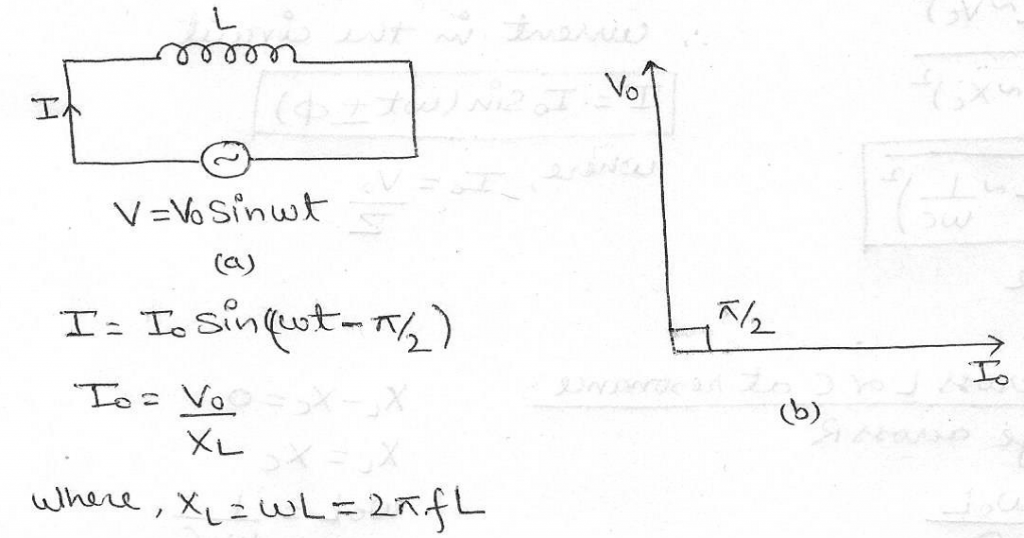 L
I
V = V₀ Sinωt
(a)
I = I₀ Sin(ωt - π/2)
I₀ = V₀
X_L
where, X_L = ωL = 2πfL
V₀
π/2
I₀
(b)